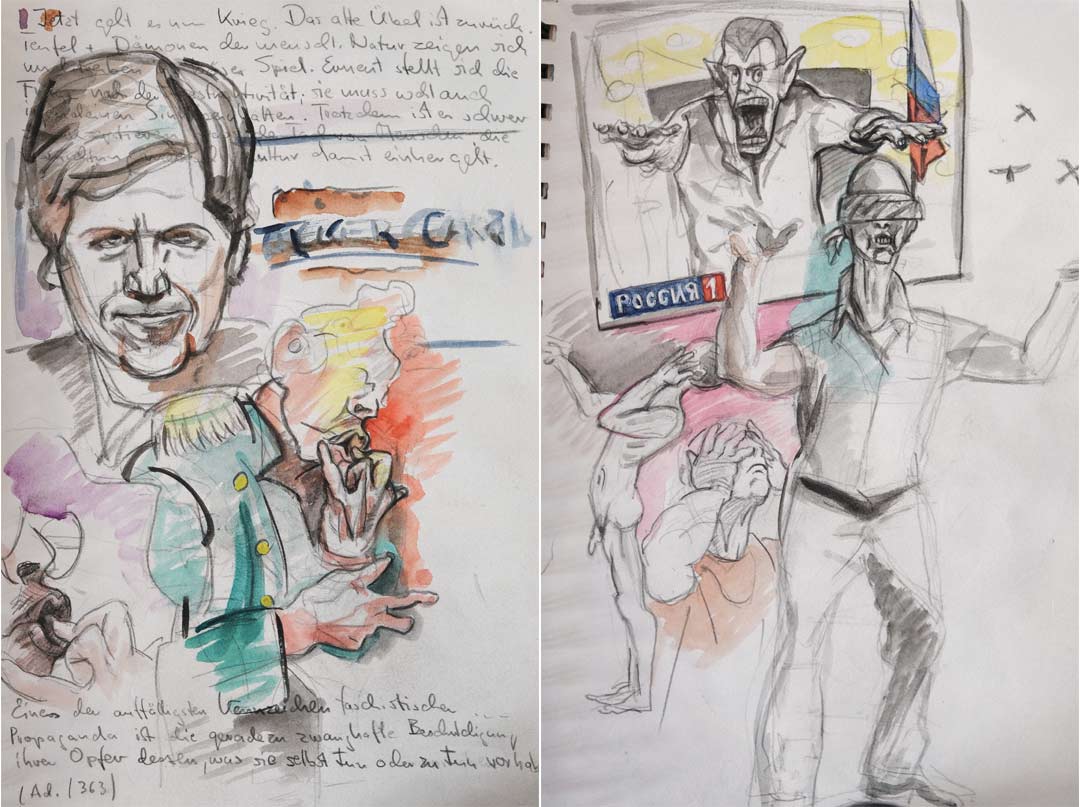 Jetzt geht es um Krieg. Das alte Übel ist zurück.
Teufel + Dämonen der menschl. Natur zeigen sich
und treiben Spiel. Erneut stellt sich die
nach der Destruktivität; sie muss wohl auch
irgendeinen Sinn enthalten. Trotzdem ist er schwer
von Menschen, die
Kultur damit einher geht.
TUCKER CARLSON
Eines der auffälligsten Kennzeichen faschistischer
Propaganda ist die geradezu zwanghafte Beschuldigung
ihrer Opfer dessen, was sie selbst tun oder zu tun vorhab
(Ad. / 363)
РОССИЯ 1